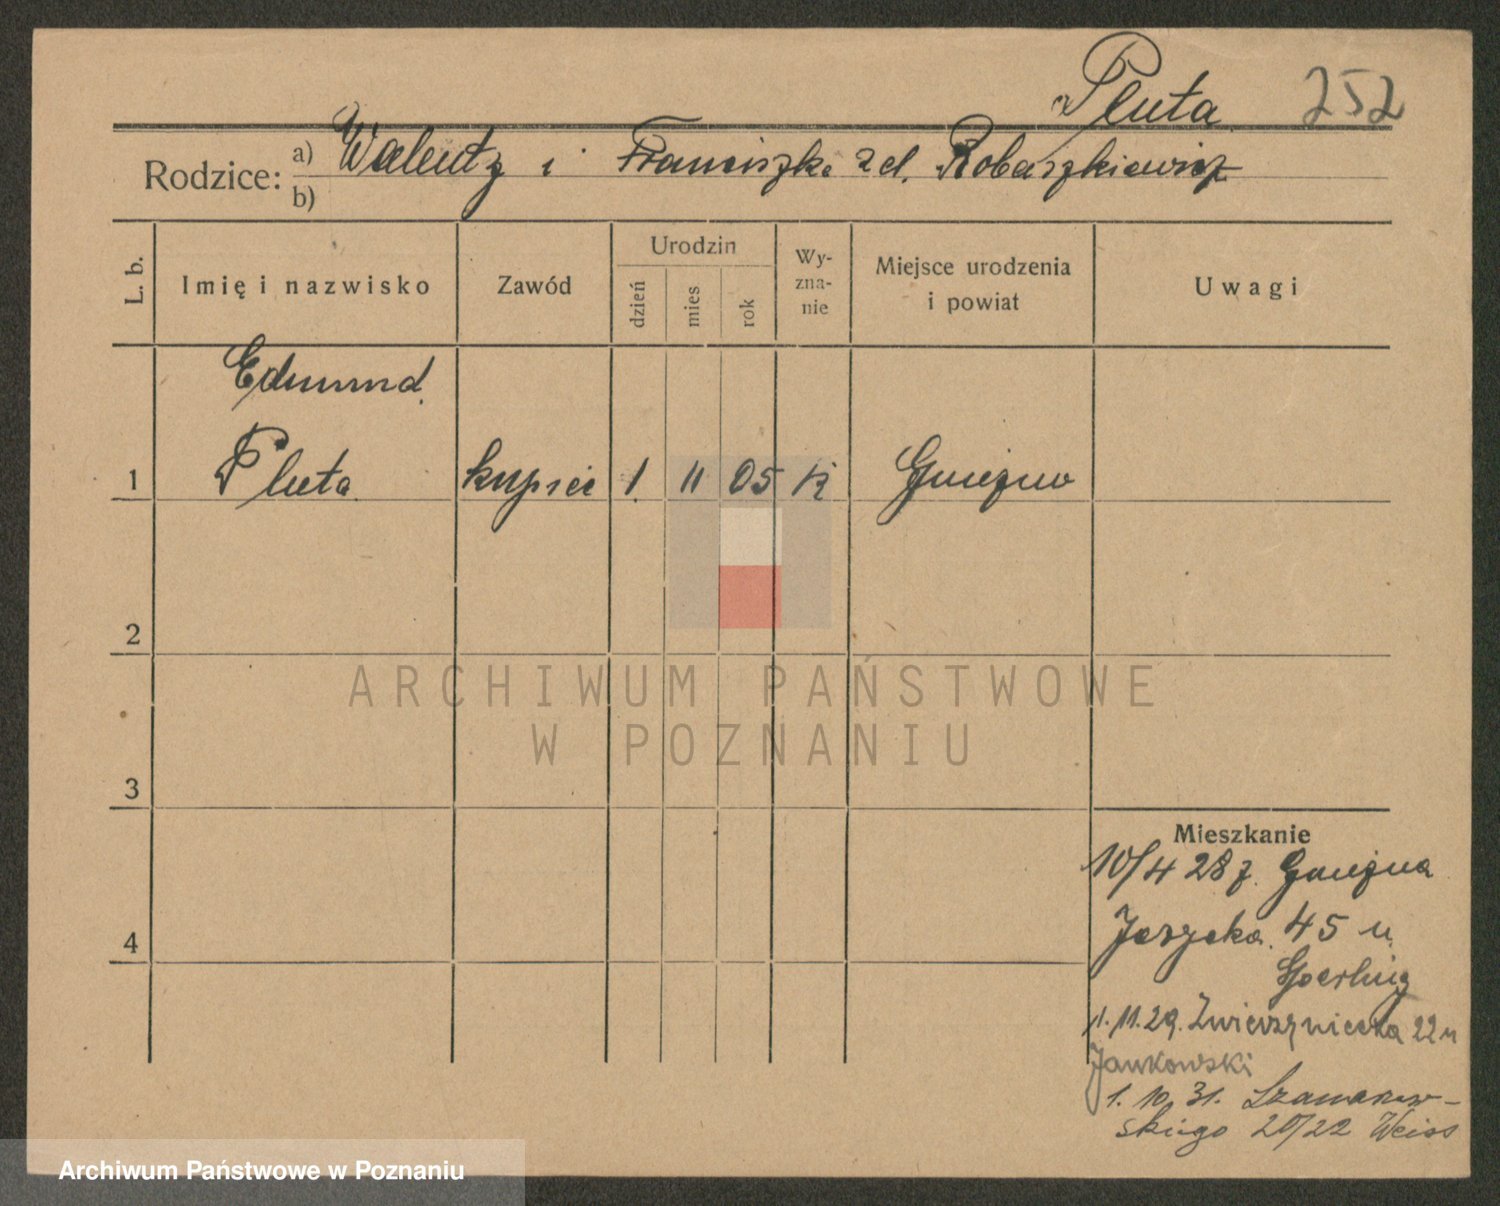 Pluta 252
Rodzice: a) Walenty i Franciszka z d. Robaszkiewicz
b)
L. b. Imię i nazwisko Zawód Urodzin dzień mies rok Wy-zna-nie Miejsce urodzenia i powiat Uwagi
Edmund
1 Pluta kupiec 1 11 05 K Gniezno
2
ARCHIWUM PAŃSTWOWE
W POZNANIU
3
Mieszkanie
10/4 28 z Gniezna
4
45 u
Goerling
1.11.29. Zwierzyniecka 22 u
Jankowski
1. 10. 31. Szamarzew-
skiego 20/22 Weiss
Archiwum Państwowe w Poznaniu